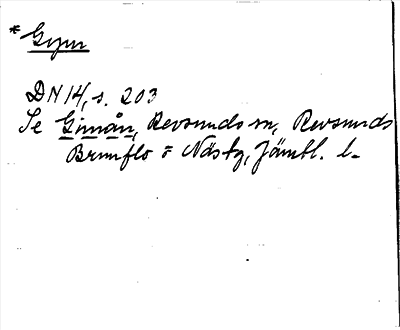 * Gym
DN 14, s. 203
Se Gimån, Revsunds sn, Revsunds
Brunflo o Näs tg, Jämtl. l.